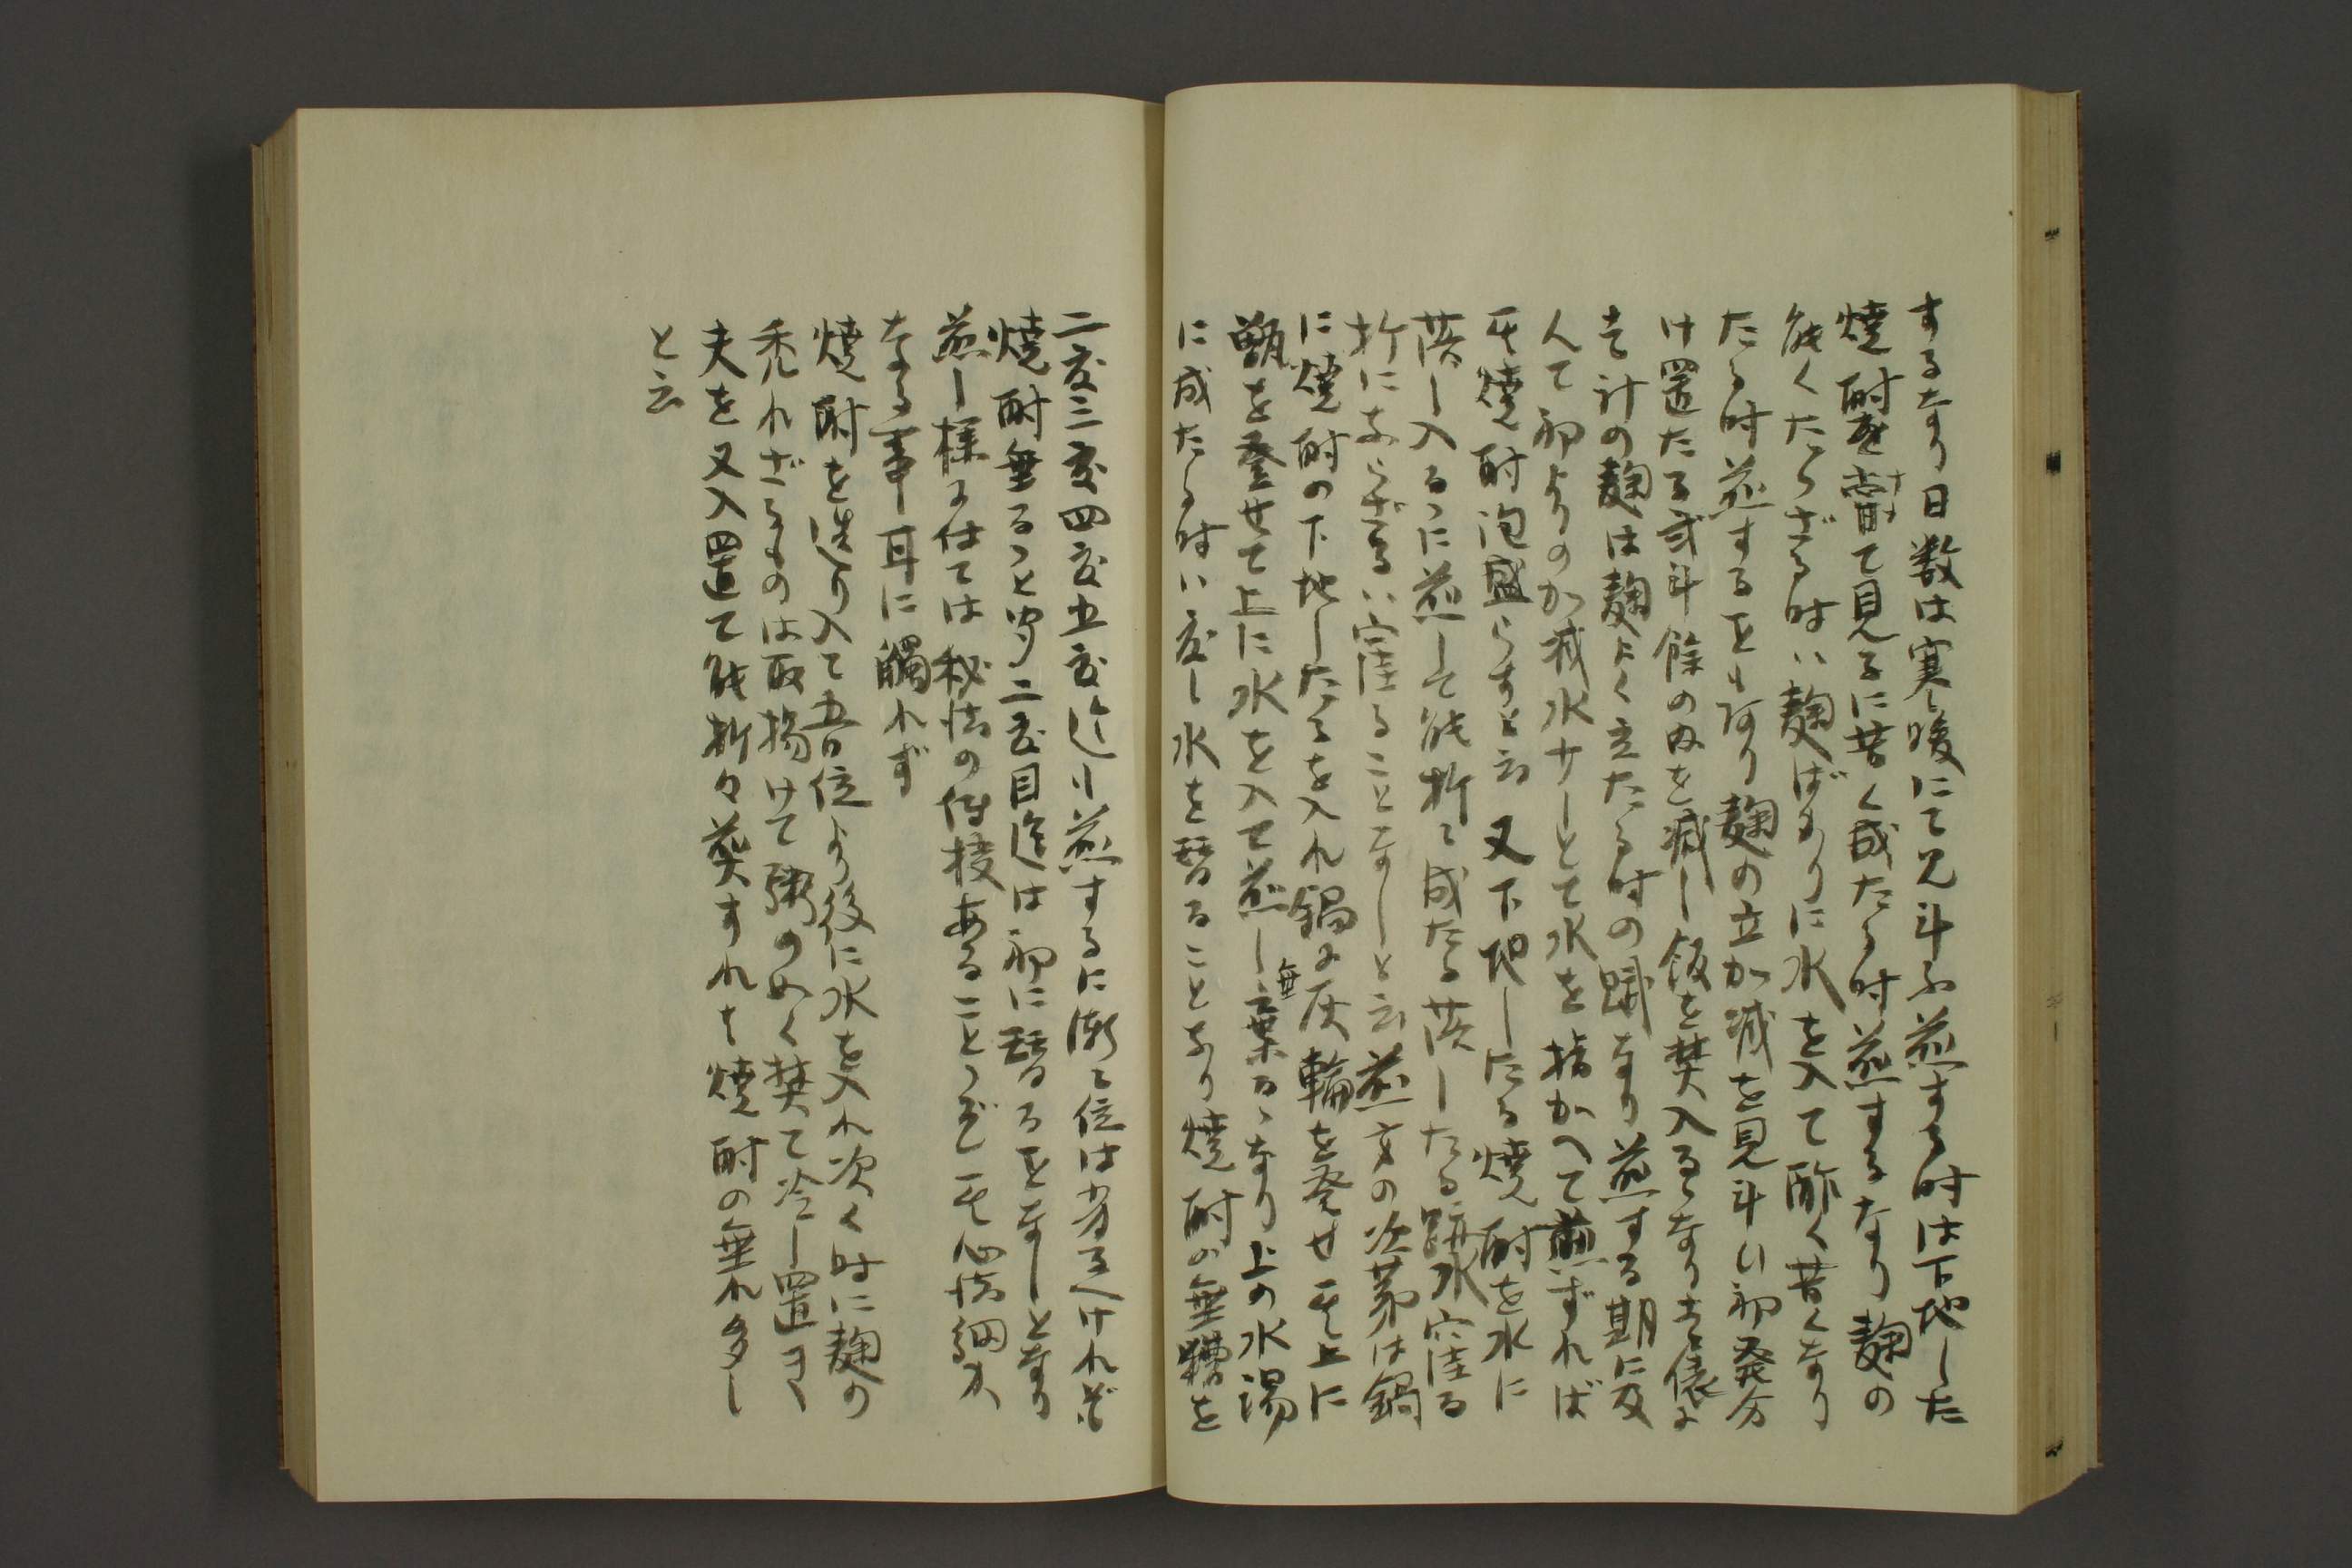 するなり日数は寒暖にて見斗ふ煎する時は下地した
焼酎を嘗て見るに苦く成たる時煎するなり麹の
能くたゝざる時ハ麹ばかりに水を入て酢く苦くなり
たる時煎するを以り麹の立加減を見斗ひ初発分
け置たる弐斗餘の内を減し飯を焚入るゝなり去儀に
を計の麹は麹よく立たる時の賦なり煎する期に及
んて初よりの加減水サーとて水を指かへて煎ずれば
其焼酎泡盛らすと云又下地したる焼酎を水に
落し入るゝに煎して能折々成たる落したる跡水窪る
折にあらざるハ窪ることなしと云煎方の次第は鍋
に焼酎の下地したるを入れ鍋に灰輪を発せ其上に
甑を登せて上に水を入て煎し棄るゝなり上の水湯
無
に成たる時ハ度し水を替ることなり焼酎の垂糟を
二度三度四度五度迄も煎するに漸々位は劣るへけれど
焼酎垂るゝと申二度目迄は初に替るをなしとなり
煎し様に仕ては秘法の伝授あることゝぞ其心法細大
なる事ー耳に觸れず
焼酎を造り入て五日位より後に水を入れ次く時に麹の
禿れざるものは取揚けて粥のめく焚て冷し置き
夫を又入置て能折々葵すれは焼酎の垂れ多し
と云